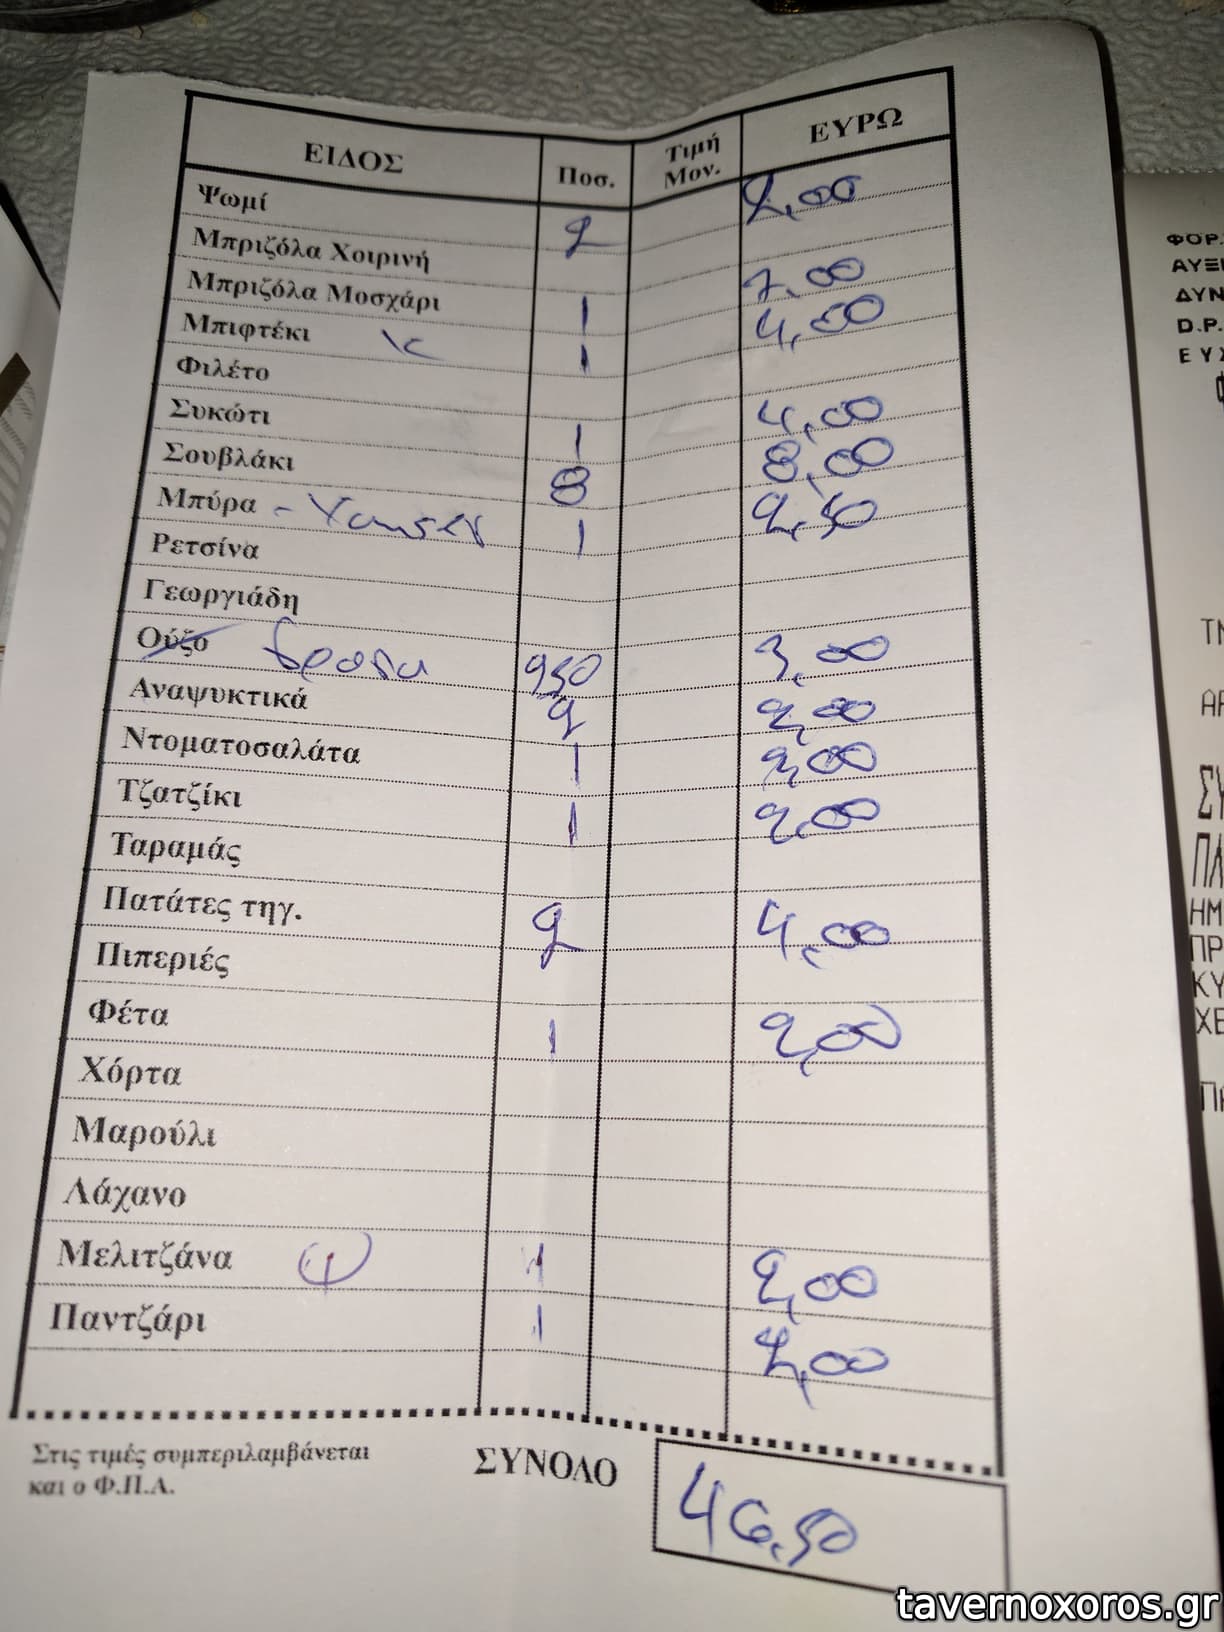 ΕΙΔΟΣ Ποσ. Τιμή Μον. ΕΥΡΩ
Ψωμί 2 2,00
Μπριζόλα Χοιρινή
Μπριζόλα Μοσχάρι 1 7,00
Μπιφτέκι κ 1 4,50
Φιλέτο
Συκώτι 1 4,00
Σουβλάκι 8 8,00
Μπύρα - 1 2,50
Ρετσίνα
Γεωργιάδη
Ούζο 250 3,00
Αναψυκτικά 2 2,00
Ντοματοσαλάτα 1 2,00
Τζατζίκι 1 2,00
Ταραμάς
Πατάτες τηγ. 2 4,00
Πιπεριές
Φέτα 1 2,00
Χόρτα
Μαρούλι
Λάχανο
Μελιτζάνα ψ 1 2,00
Παντζάρι 1 2,00
Στις τιμές συμπεριλαμβάνεται
και ο Φ.Π.Α.
ΣΥΝΟΛΟ 46,50
ΦΟΡ.
ΑΥΞ
ΔΥΝ
D.P.
ΕΥΣ
ΗΜ
ΠΡ
ΚΥ
ΧΕ
tavernoxoros.gr